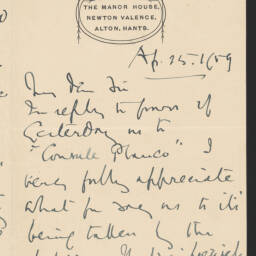 THE MANOR HOUSE,
NEWTON VALENCE,
ALTON, HANTS.
Ap. 25. 1909
My dear Sir
In reply to favour of
yesterday as to
"Consule Planco" I
very fully appreciate
what you say as to its
being taken by the